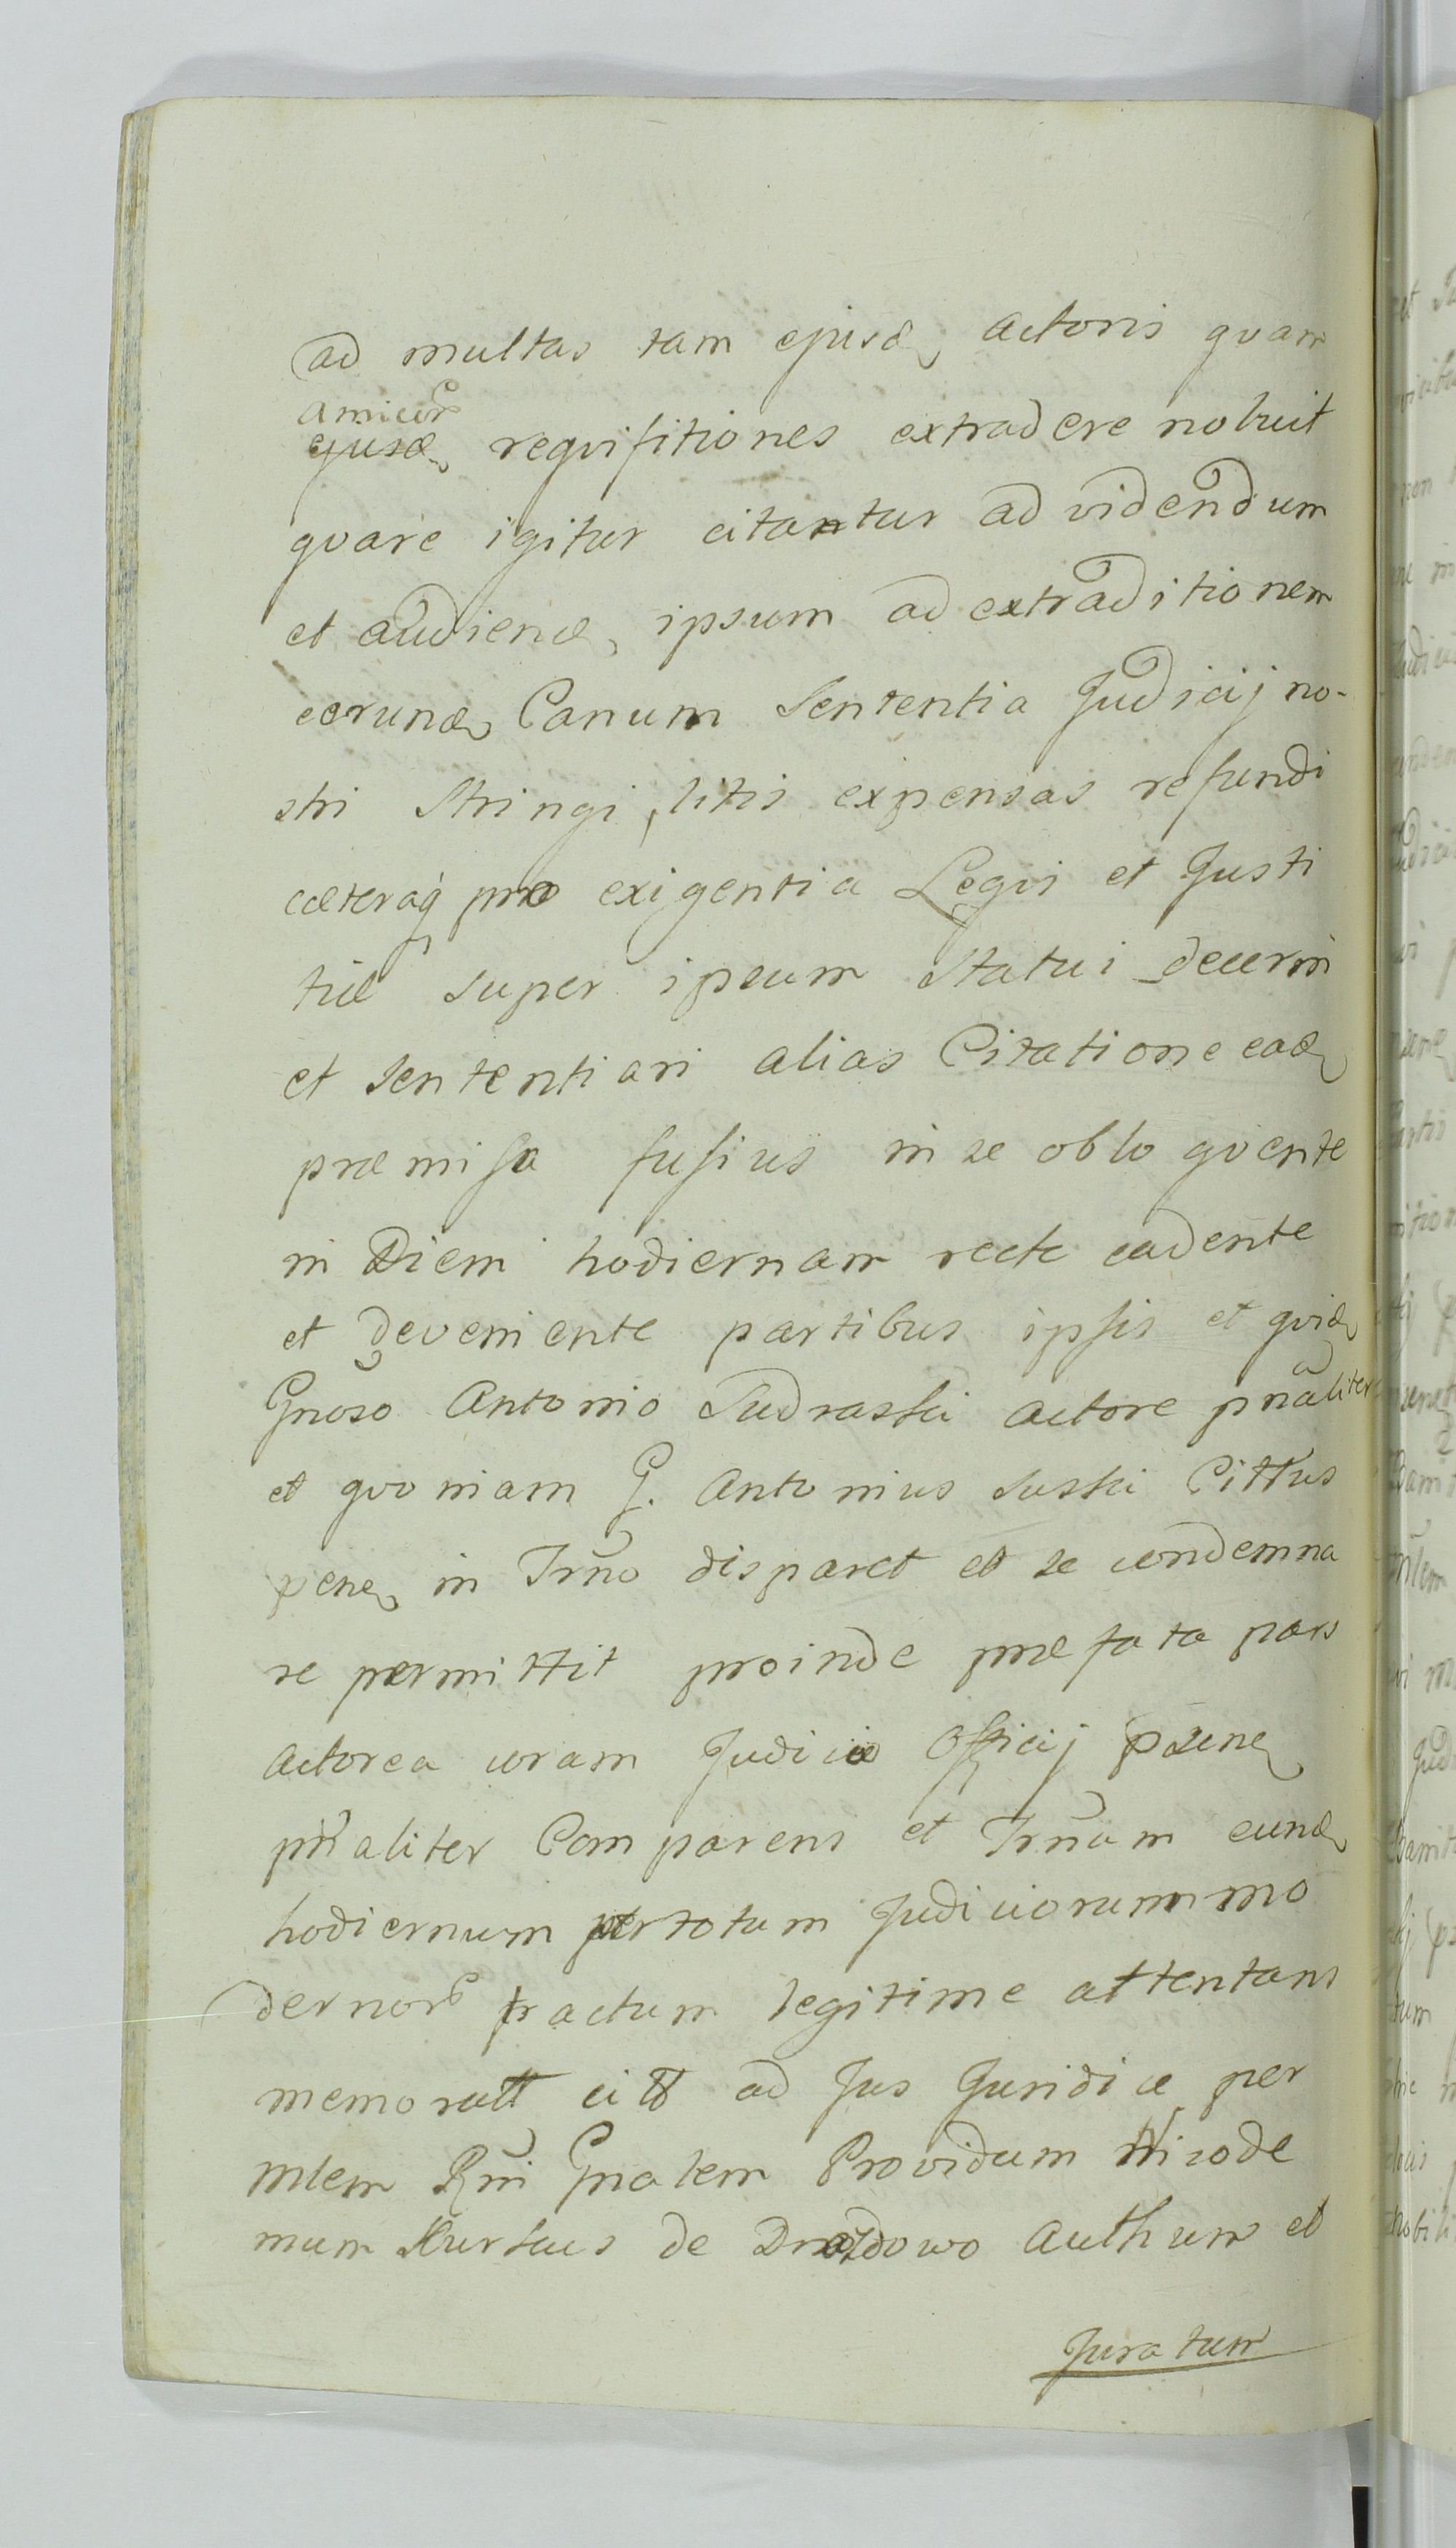 ad multas tam ejusd, actoris qvam
amicor
ejusd, reqvisitiones extradere noluit
qvare igitur citantur ad videndum
et audiend, ipsum ad extraditionem
eorund, Canum Sententia Judicij no-
stri Stringi, litis expensas refundi
cæteraq pro exigentia Legis et Justi
tiæ super ipsum Statui decerni
et sententiari alias Citatione ead,
præmissa fusius in se obloqvente
in Diem hodiernam recte cadente
et deveniente partibus ipsis et qvid,
Gnoso Antonio Sudraski actore pnaliter
et qvoniam G. Antonius Suski Cittus
pene, in Trno disparet et se condemna
re permittit proinde præfata pars
actorea coram Judicio Officij psene,
pnaliter Comparens et Trnum eund,
hodiernum pertotum Judiciorum mo
dernor tractum legitime attentans
memoratt citt ad Jus Juridice per
mlem Rni Gnalem Providum Nicode
mum Kurkus de Drozdowo Authum et
Juratum